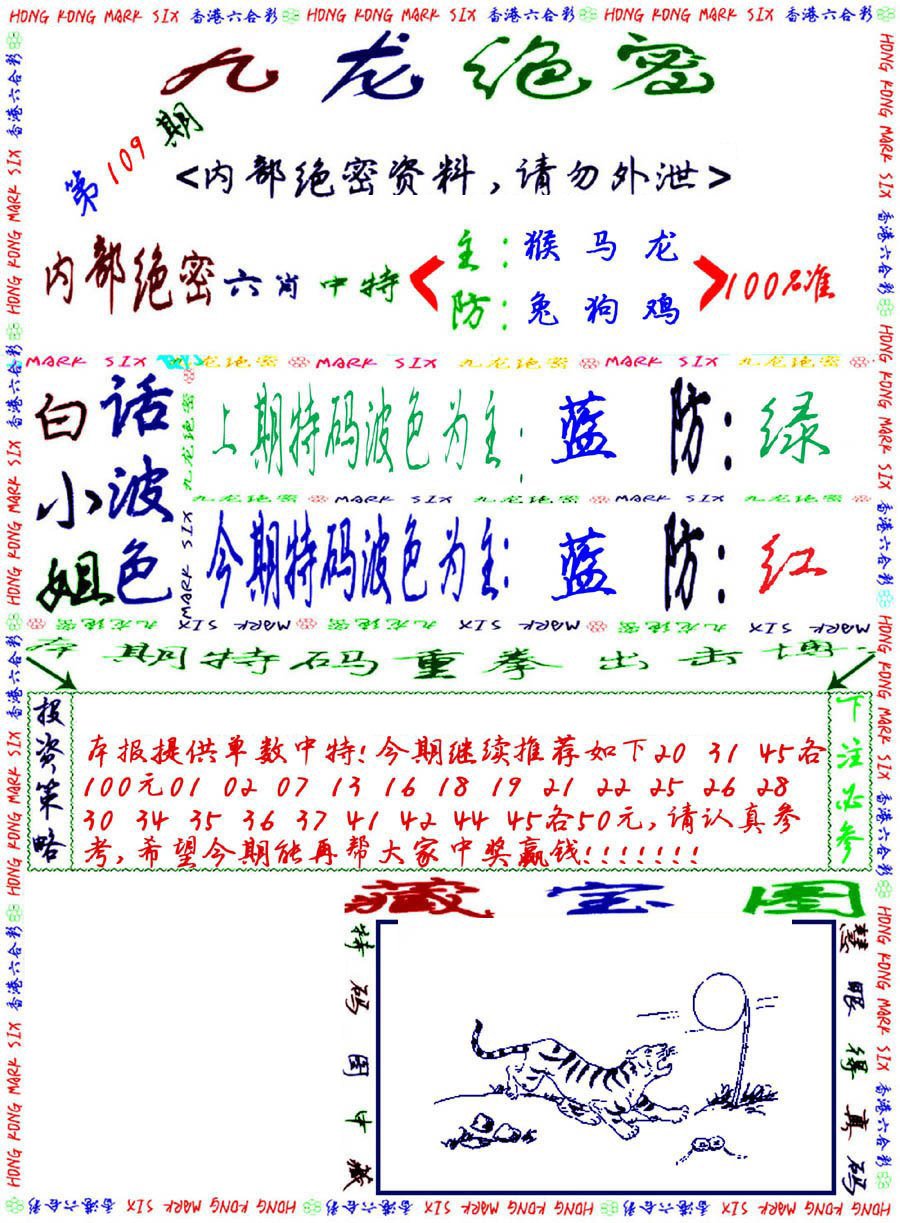 HONG KONG MARK SIX 香港六合彩 HONG KONG MARK SIX 香港六合彩 HONG KONG MARK SIX 香港六合彩
九龙绝密
第109期
<内部绝密资料,请勿外泄>
内部绝密六肖中特
主:猴马龙
防:兔狗鸡
100%准
MARK SIX 九龙绝密 MARK SIX 九龙绝密 MARK SIX 九龙绝密
白话小波姐色
上期特码波色为主:蓝 防:绿
九龙绝密 MARK SIX 九龙绝密 MARK SIX 九龙绝密
今期特码波色为主:蓝 防:红
九龙绝密 MARK SIX 九龙绝密 MARK SIX 九龙绝密 MARK SIX
期特码重拳出击
投资策略
本报提供单数中特!今期继续推荐如下20 31 45各
100元01 02 07 13 16 18 19 21 22 25 26 28
30 34 35 36 37 41 42 44 45各50元,请认真参
考,希望今期能再帮大家中奖赢钱!!!!!!!
下注必参
藏宝图
特码图中藏
慧眼得真码
HONG KONG MARK SIX 香港六合彩 HONG KONG MARK SIX 香港六合彩 HONG KONG MARK SIX 香港六合彩